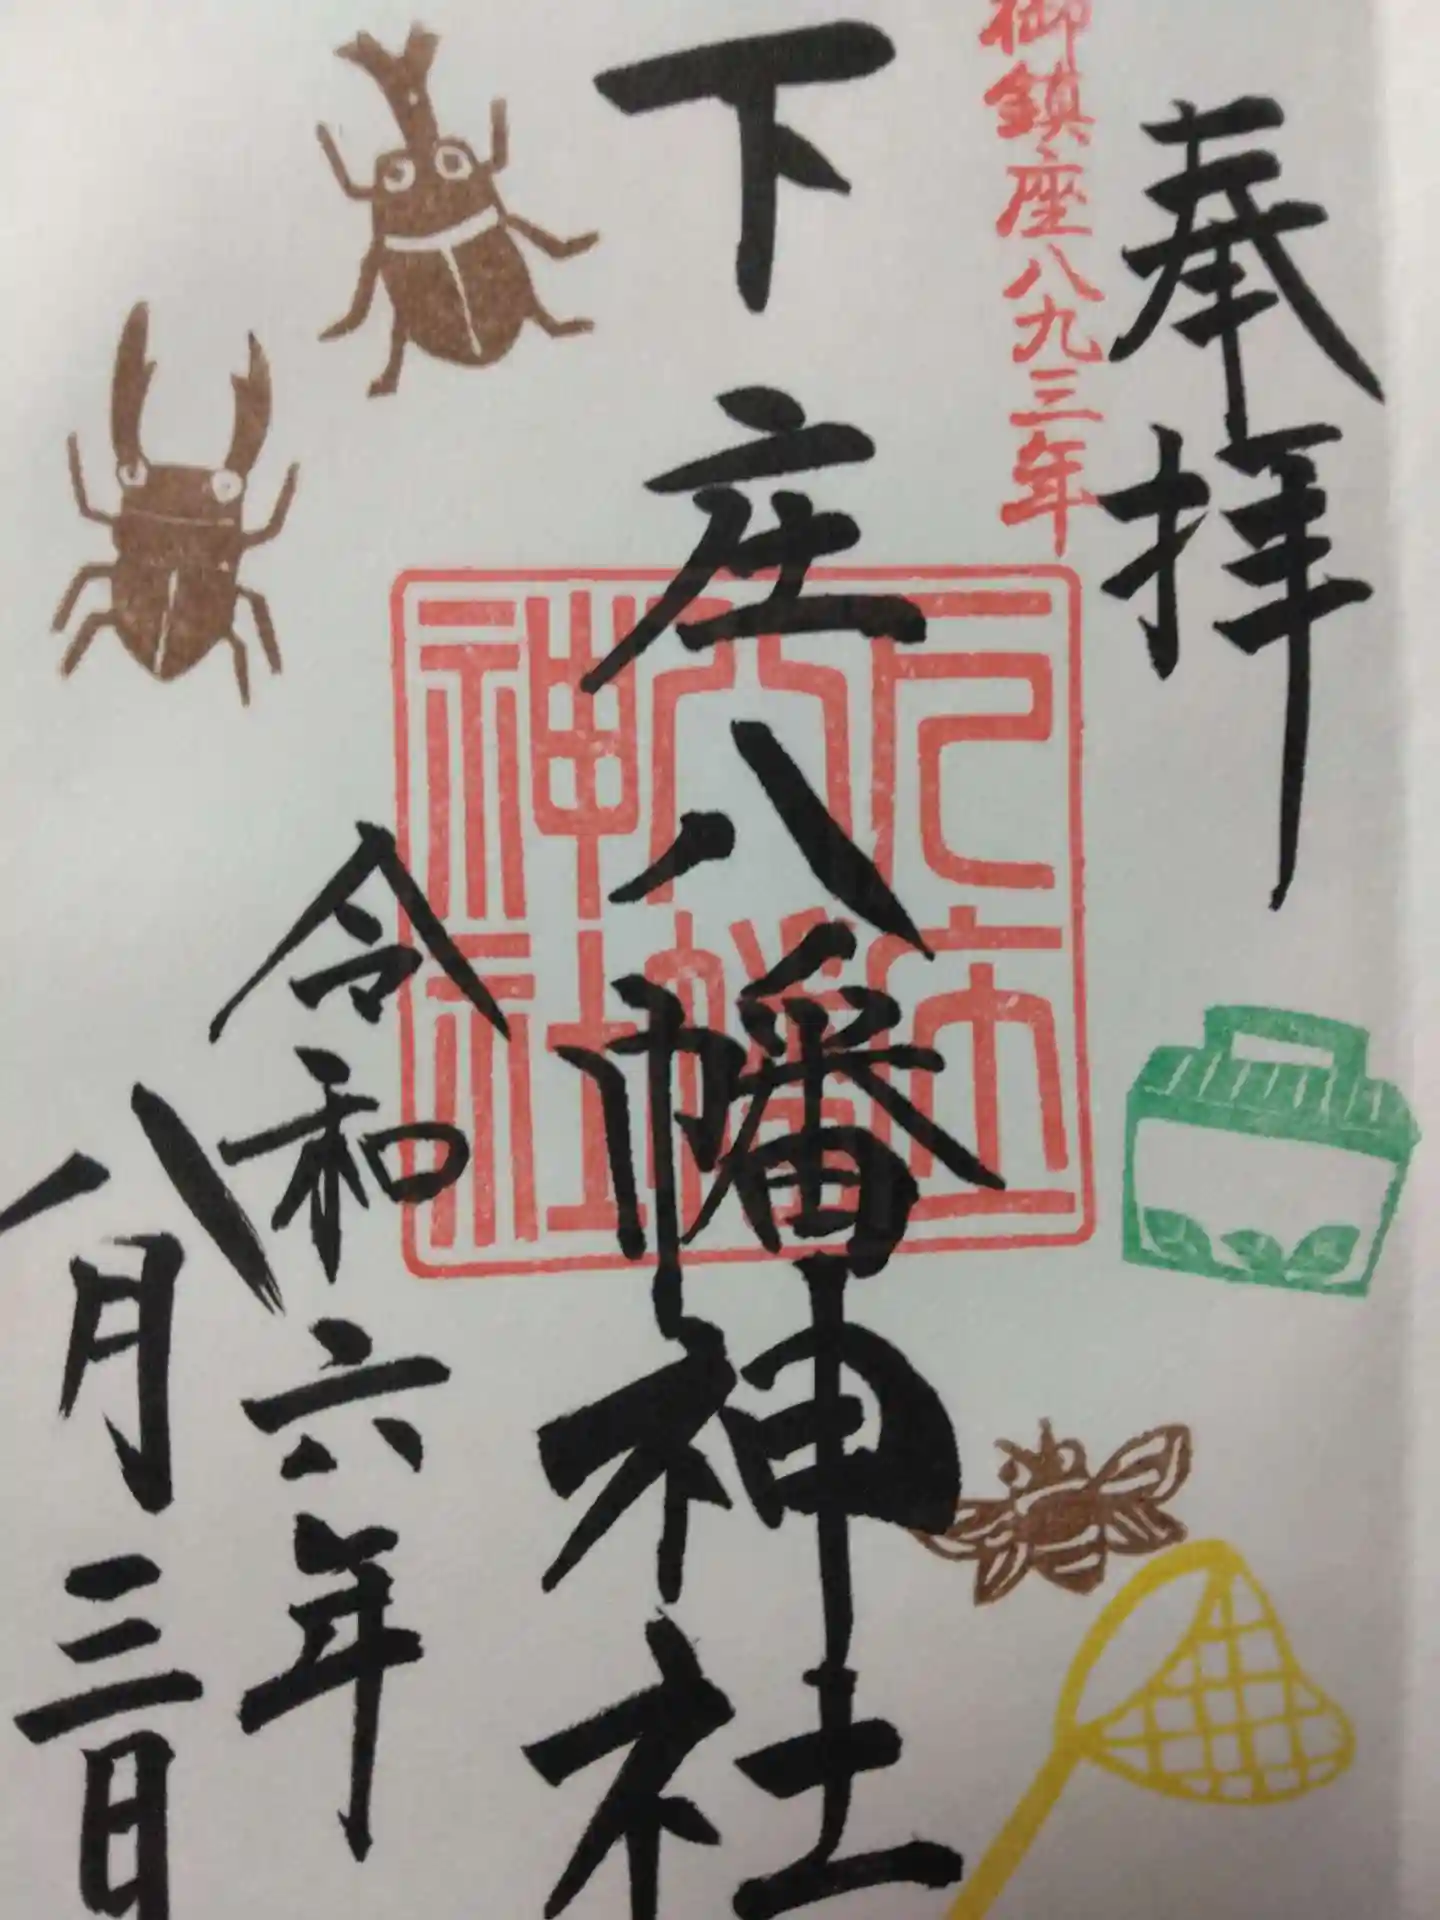 奉拝
御鎮座八九三年
下庄八幡神社
下庄
八幡
神社
令和六年
八月三日